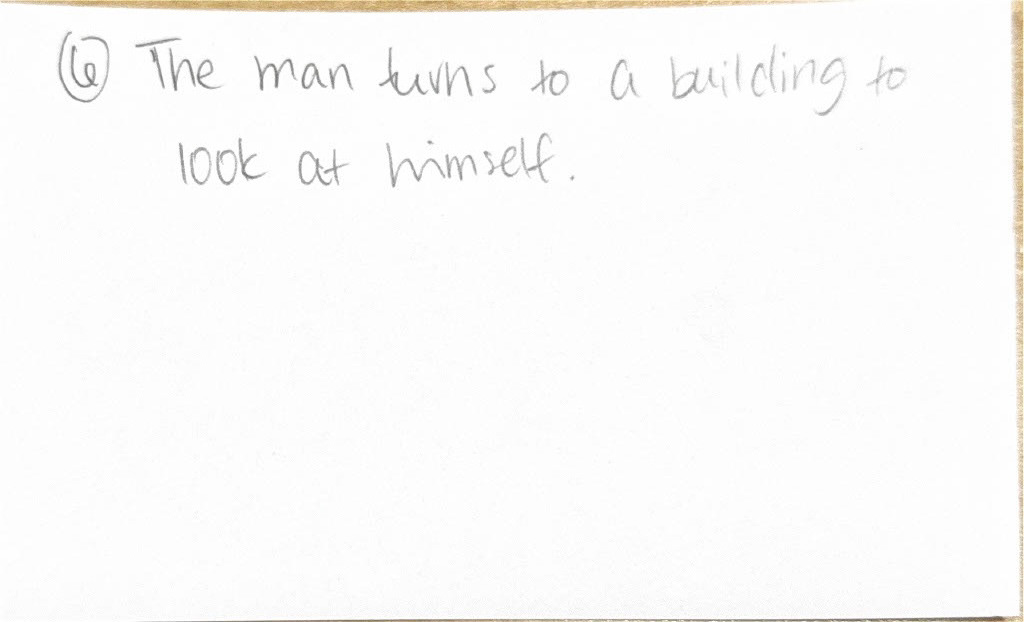 ⑥ The man turns to a building to
look at himself.